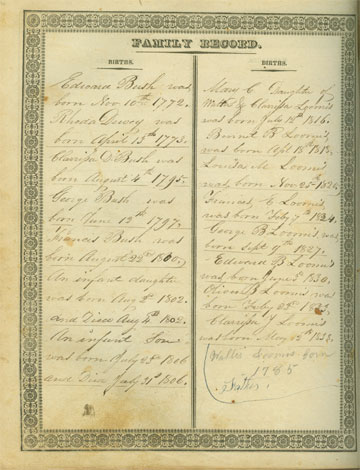 FAMILY RECORD.
BIRTHS.
Edward Bush was
born Nov 10th 1772.
Rhoda Dewey was
born April 13th 1773.
Clarissa D. Bush was
born August 4th 1795.
George Bush was
born June 12th 1797.
Francis Bush was
born August 22d 1800.
An infant daughter
was born Aug 1802.
and Died Aug 4th 1802.
An infant Son
was born July 28th 1806
and Died July 31st 1806.
BIRTHS.
Mary C Daughter of
& Clarissa Loomis
was born July 18th 1816.
B Loomis
was born Sept 18th 1818.
Louisa M Loomis
was born Nov 25th
Frances E Loomis
was born July 7th 1824.
George B Loomis was
born Sept 9th 1827.
Edward B Loomis
was born June 5th 1830.
Oliver B Loomis was
born July 1833.
Clarissa Loomis
was born May 12th
Loomis born
1785